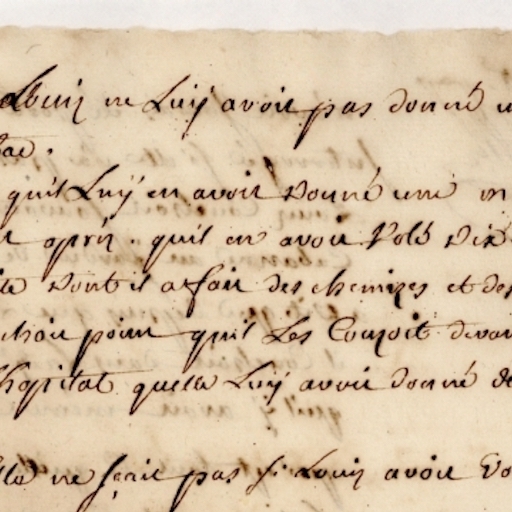 Louis ne Luy avoit pas donné
quil Luy en avoit donné une
quil en avoit volé dix
dont il a fait des chemises et des
point quil Les Couzoit devan
hopital quelle Luy avoit donné de
ne sçait pas si Louis avoit vo